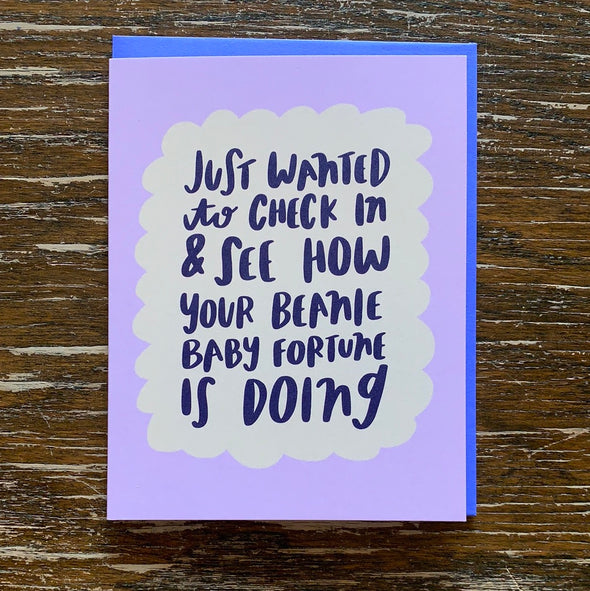 JUST WANTED
to CHECK IN
& SEE HOW
YOUR BEANIE
BABY FORTUNE
IS DOING